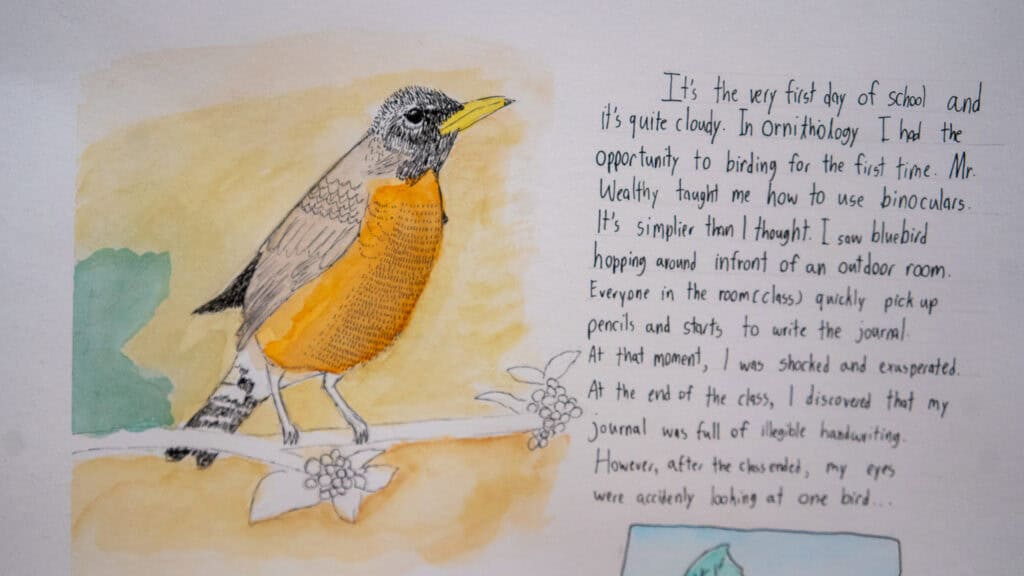 It's the very first day of school and
it's quite cloudy. In Ornithology I had the
opportunity to birding for the first time. Mr.
Wealthy taught me how to use binoculars.
It's simplier than I thought. I saw bluebird
hopping around infront of an outdoor room.
Everyone in the room(class) quickly pick up
pencils and starts to write the journal.
At that moment, I was shocked and exasperated.
At the end of the class, I discovered that my
journal was full of illegible handwriting.
However, after the class ended, my eyes
were accidenly looking at one bird...